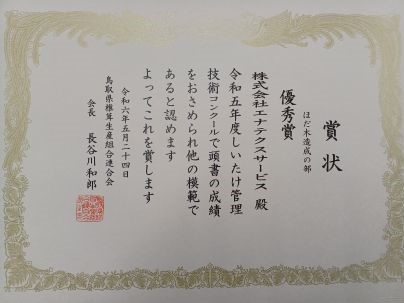 賞状
ほだ木造成の部
優秀賞
株式会社エナテクスサービス 殿
令和五年度しいたけ管理
技術コンクールで頭書の成績
をおさめられ他の模範で
あると認めます
よってこれを賞します
令和六年五月二十四日
鳥取県椎茸生産組合連合会
会長 長谷川和郎